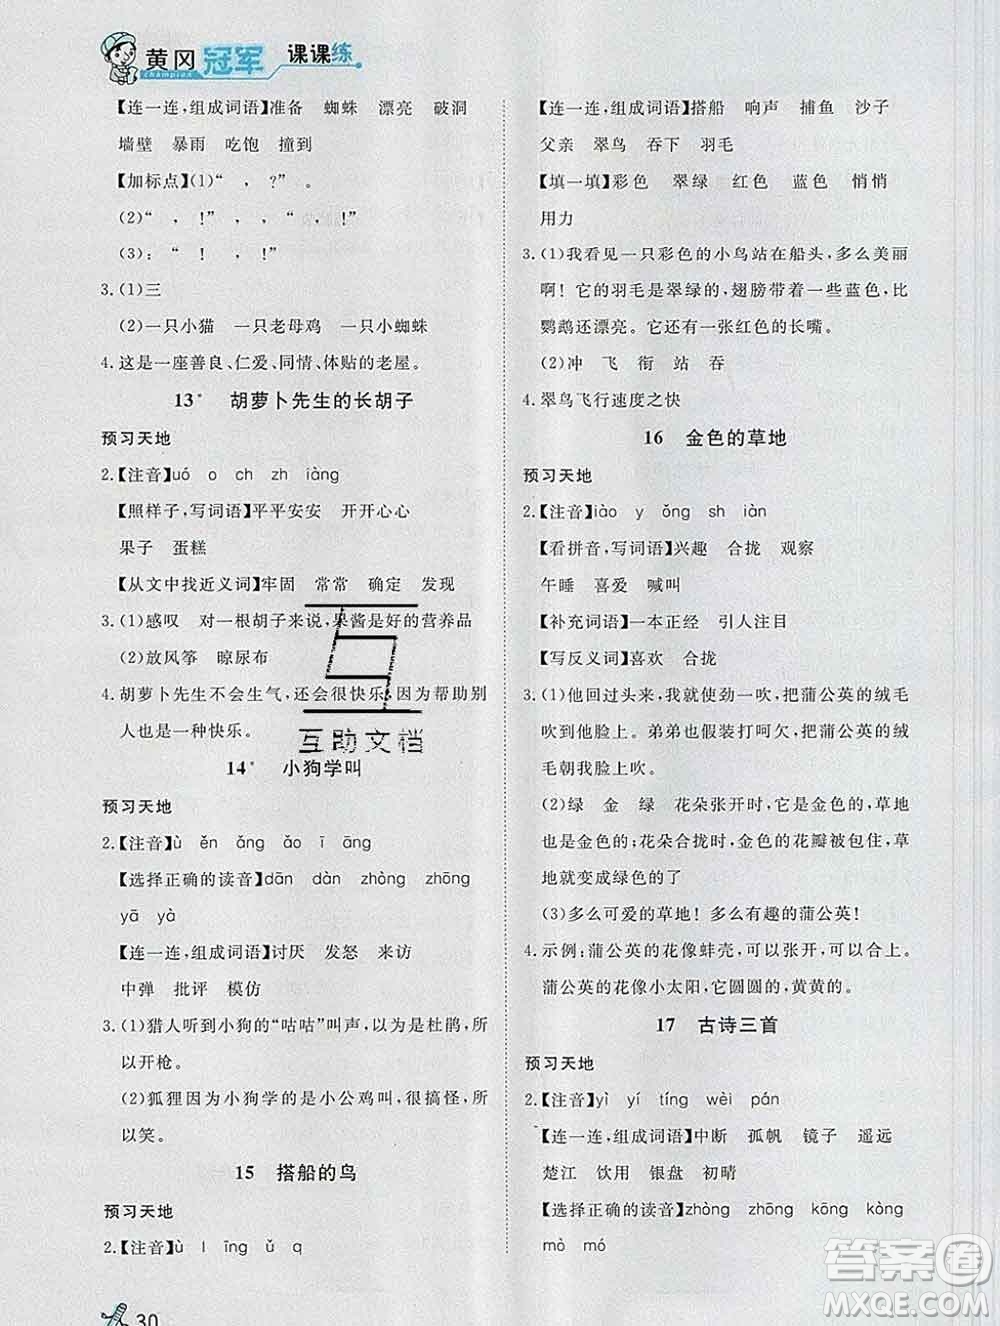 黄冈冠军课课练
champion
【连一连,组成词语】准备 蜘蛛 漂亮 破洞
墙壁 暴雨 吃饱 撞到
【加标点】(1)“ , ?” 。
(2)“ , !” , !”
(3):“ ! , !”
3.(1)三
(2)一只小猫 一只老母鸡 小蜘蛛
4.这是一座善良、仁爱、同情、体贴的老屋。
13* 胡萝卜先生的长胡子
预习天地
2.【注音】uó o ch zh iàng
【照样子,写词语】平平安安 开开心心
果子 蛋糕
【从文中找近义词】牢固 常常 确定 发现
3.(1)感叹 对一根胡子来说,果酱是好的营养品
(2)放风筝 晾尿布
4.胡萝卜先生不会生气,还会很快乐,因为帮助别
人也是一种快乐。
互助文档
14* 小狗学叫
预习天地
2.【注音】ù ěn ǎng ǎo ī āng
【选择正确的读音】dān dàn zhòng zhōng
yā yà
【连一连,组成词语】讨厌 发怒 来访
中弹 批评 模仿
3.(1)猎人听到小狗的“咕咕”叫声,以为有杜鹃,所
以开枪。
(2)狐狸因为小狗学的是小公鸡叫,很搞怪,所
以笑。
15 搭船的鸟
预习天地
2.【注音】ù l īng ǔ q
30
【连一连,组成词语】搭船 响声 捕鱼 沙子
父亲 翠鸟 吞下 羽毛
【填一填】彩色 翠绿 红色 蓝色 悄悄
用力
3.(1)我看见一只彩色的小鸟站在船头,多么美丽
啊!它的羽毛是翠绿的,翅膀带着一些蓝色,比
鹦鹉还漂亮。它还有一张红色的长嘴。
(2)冲 飞 衔 站 吞
4.翠鸟飞行速度之快
16 金色的草地
预习天地
2.【注音】iào y ǒng sh iàn
【看拼音,写词语】兴趣 合拢 观察
午睡 喜爱 喊叫
【补充词语】一本正经 引人注目
【写反义词】喜欢 合拢
3.(1)他回过头来,我使劲一吹,把蒲公英的绒毛
吹到他脸上。弟弟也假装打呵欠,把蒲公英的绒
毛朝我脸上吹。
(2)绿 金 绿 花朵张开时,它是金色的,草地
也是金色的;花朵合拢时,金色的花瓣被包住,草
地就变成绿色的了
(3)多么可爱的草地!多么有趣的蒲公英!
4.示例:蒲公英的花像蚌壳,可以张开,可以合上。
蒲公英的花像小太阳,它圆圆的,黄黄的。
17 古诗三首
预习天地
2.【注音】yì yí tíng wèi pán
【连一连,组成词语】中断 孤帆 镜子 遥远
楚江 饮用 银盘 初晴
【选择正确的读音】zhòng zhōng kōng kòng
mò mó
答案圈
MXQE.COM